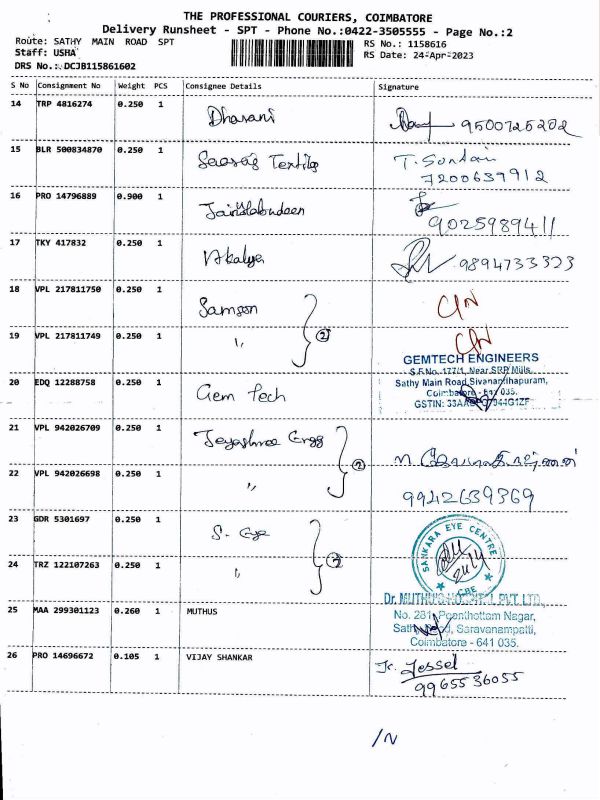 THE PROFESSIONAL COURIERS, COIMBATORE
Delivery Runsheet - SPT - Phone No.:0422-3505555 - Page No.:2
Route: SATHY MAIN ROAD SPT
RS No.: 1158616
Staff: USHA
RS Date: 24-Apr-2023
DRS No.: DCJB115861602
S No Consignment No Weight PCS Consignee Details Signature
14 TRP 4816274 0.250 1 Dharani 9500725202
15 BLR 500834870 0.250 1 T. Sundari
7200639912
16 PRO 14796889 0.900 1
9025989411
17 TKY 417832 0.250 1 Akalya 9894733323
18 VPL 217811750 0.250 1 Samson
②
19 VPL 217811749 0.250 1 "
GEMTECH ENGINEERS
S.F.No. 177/1, Near SRP Mills,
Sathy Main Road, Sivanandhapuram,
20 EDQ 12288758 0.250 1 Gem Tech
Coimbatore - 641 035.
GSTIN:
21 VPL 942026709 0.250 1 Jeyashree Engg
②
22 VPL 942026698 0.250 1 "
9942639369
23 GDR 5301697 0.250 1 S. Eye
SANKARA EYE CENTRE
24 TRZ 122107263 0.250 1 "
CBE
Dr. MUTHUS HOSPITAL PVT LTD.,
25 MAA 299301123 0.260 1 MUTHUS
No. 281, Poonthottam Nagar,
Sathy Road, Saravanampatti,
Coimbatore - 641 035.
26 PRO 14696672 0.105 1 VIJAY SHANKAR Jessel
9965536055
/N